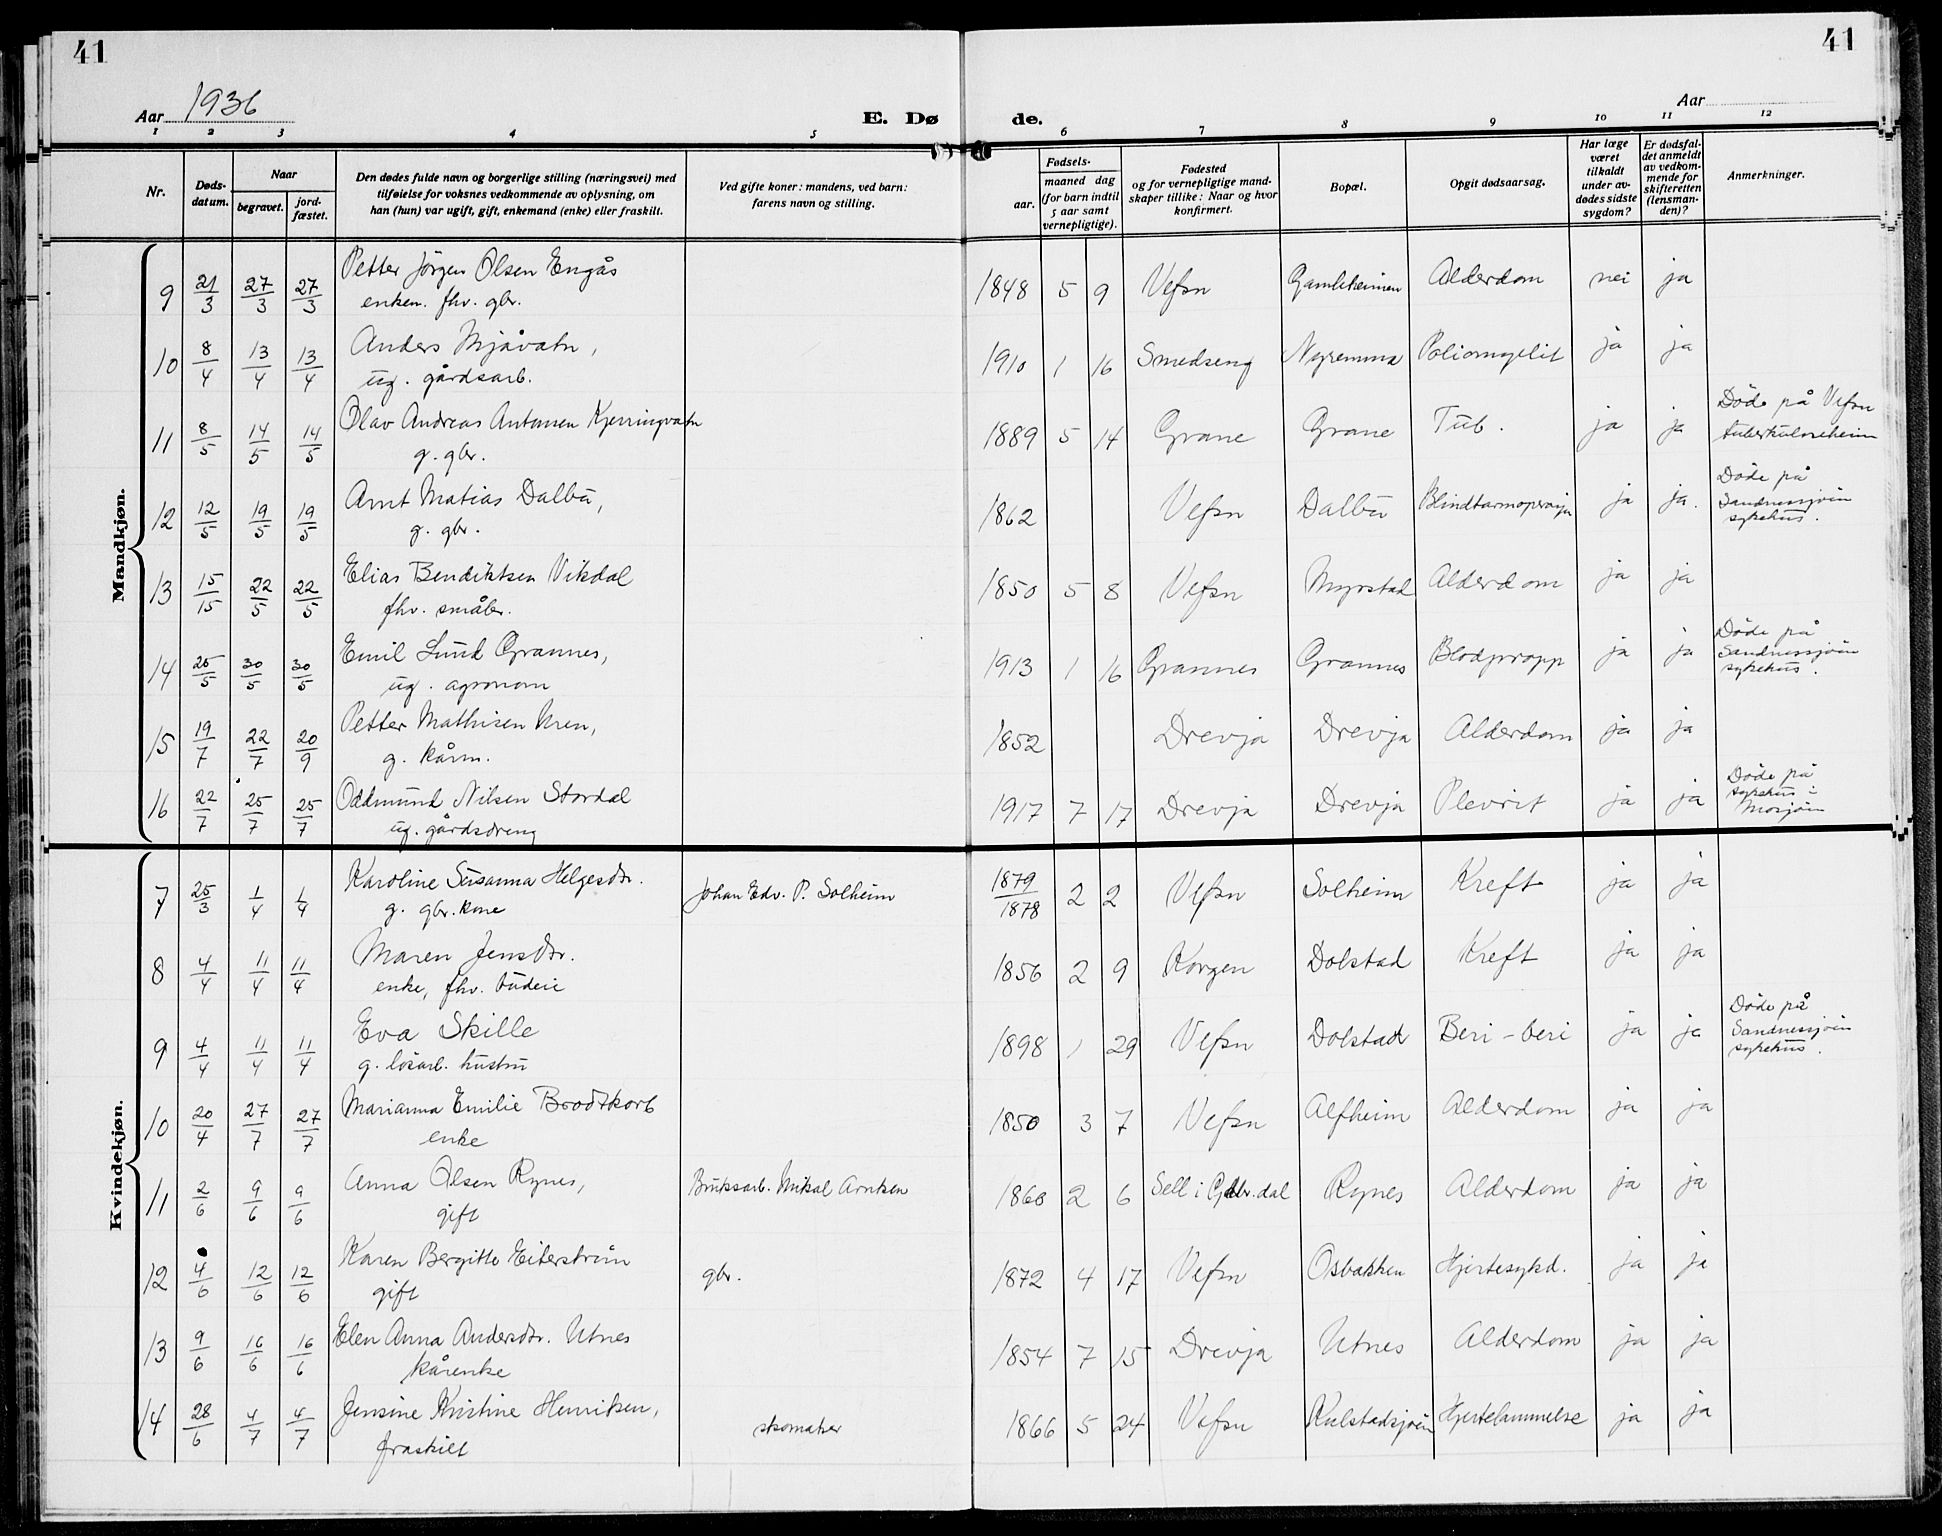 41
41
Aar 1936
E. Dø de.
Aar
1 2 3 4 5 6 7 8 9 10 11 12
Nr.
Døds-
datum.
Naar
begravet.
jord-
fæstet.
Den dødes fulde navn og borgerlige stilling (næringsvei) med
tilføielse for voksnes vedkommende av oplysning, om
han (hun) var ugift, gift, enkemand (enke) eller fraskilt.
Ved gifte koner: mandens, ved barn:
farens navn og stilling.
Fødsels-
aar.
maaned dag
(for barn indtil
5 aar samt
vernepligtige).
Fødested
og for vernepligtige mand-
skaper tillike: Naar og hvor
konfirmert.
Bopæl.
Opgit dødsaarsag.
Har læge
været
tilkaldt
under av-
dødes sidste
sygdom?
Er dødsfal-
det anmeldt
av vedkom-
mende for
skifteretten
(lensman-
den)?
Anmerkninger.
Mandkjøn.
9 21/3 27/3 27/3 Petter Jörgen Olsen Engås 1848 5 9 Vefsn Gamleheimen Alderdom nei ja
enkem. fhv. gbr.
10 8/4 13/4 13/4 Anders Mjåvatn, 1910 1 16 Smedseng Nyremma Poliomyelit ja ja
ug. gårdsarb.
11 8/5 14/5 14/5 Olav Andreas Antonsen Kjerringvatn 1889 5 14 Grane Grane Tub. ja ja Döde på Vefsn
g. gbr. tuberkuloseheim
12 12/5 19/5 19/5 Arnt Matias Dalbu, 1862 Vefsn Dalbu Blindtarmoperasjon ja ja. Döde på
g. gbr. Sandnessjöen
sykehus.
13 15/15 22/5 22/5 Elias Bendiktsen Vikdal 1850 5 8 Vefsn Myrstad Alderdom ja ja
fhv. småbr.
14 25/5 30/5 30/5 Emil Lund Grannes, 1913 1 16 Grannes Grannes Blodpropp ja ja Döde på
ug. agronom Sandnessjöen
sykehus.
15 19/7 22/7 20/9 Petter Mathisen Uren, 1852 Drevja Drevja Alderdom ja ja
g. kårm.
16 22/7 25/7 25/7 Oddmund Nilsen Stordal 1917 7 17 Drevja Drevja Plevrit ja ja Döde på
ug. gårdsdreng sykehus i
Mosjöen
Kvindekjøn.
7 25/3 1/4 1/4 Karoline Susanna Helgesdtr. Johan Edv. P. Solheim 1879/1878 2 2 Vefsn Solheim Kreft ja ja
g. gbr. kone
8 4/4 11/4 11/4 Maren Jensdtr. 1856 2 9 Korgen Dolstad Kreft ja ja
enke, fhv. budeie
9 4/4 11/4 11/4 Eva Skille 1898 1 29 Vefsn Dolstad Beri-beri ja ja Döde på
g. lösarb. hustru Sandnessjöen
sykehus.
10 20/4 27/7 27/7 Marianna Emilie Brodtkorb 1850 3 7 Vefsn Alfheim Alderdom ja ja
enke
11 2/6 9/6 9/6 Anna Olsen Rynes, Bruksarb. Mikal Arntsen 1860 2 6 Sell i Gdbr.dal Rynes Alderdom ja ja
gift
12 4/6 12/6 12/6 Karen Bergitte Eiterström gbr. 1872 4 17 Vefsn Osbakken Hjertesykd. ja ja
gift
13 9/6 16/6 16/6 Elen Anna Andersdtr. Utnes 1854 7 15 Drevja Utnes Alderdom ja ja
kårenke
14 28/6 4/7 4/7 Jensine Kristine Henriksen, skomaker 1866 5 24 Vefsn Kulstadsjöen Hjertelammelse ja ja
fraskilt